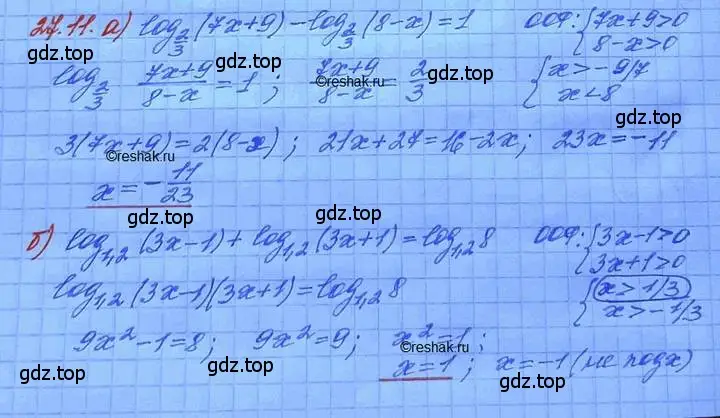 27.11. а) log_{2/3}(7x+9) - log_{2/3}(8-x) = 1   ООФ: {7x+9>0
{8-x>0
log_{2/3} (7x+9)/(8-x) = 1 ; (7x+9)/(8-x) = 2/3   {x>-9/7
{x<8
©reshak.ru
gdz.top
gdz.top
3(7x+9)=2(8-x) ; 21x+27=16-2x; 23x=-11
©reshak.ru
x = -11/23
gdz.top
gdz.top
б) log_{1,2}(3x-1) + log_{1,2}(3x+1) = log_{1,2}8   ООФ: {3x-1>0
{3x+1>0
gdz.top
log_{1,2}(3x-1)(3x+1) = log_{1,2}8   {x>1/3
{x>-1/3
gdz.top
9x²-1=8; 9x²=9; x²=1;
©reshak.ru
x=1 ; x=-1 (не подх)
gdz.top
gdz.top
gdz.top